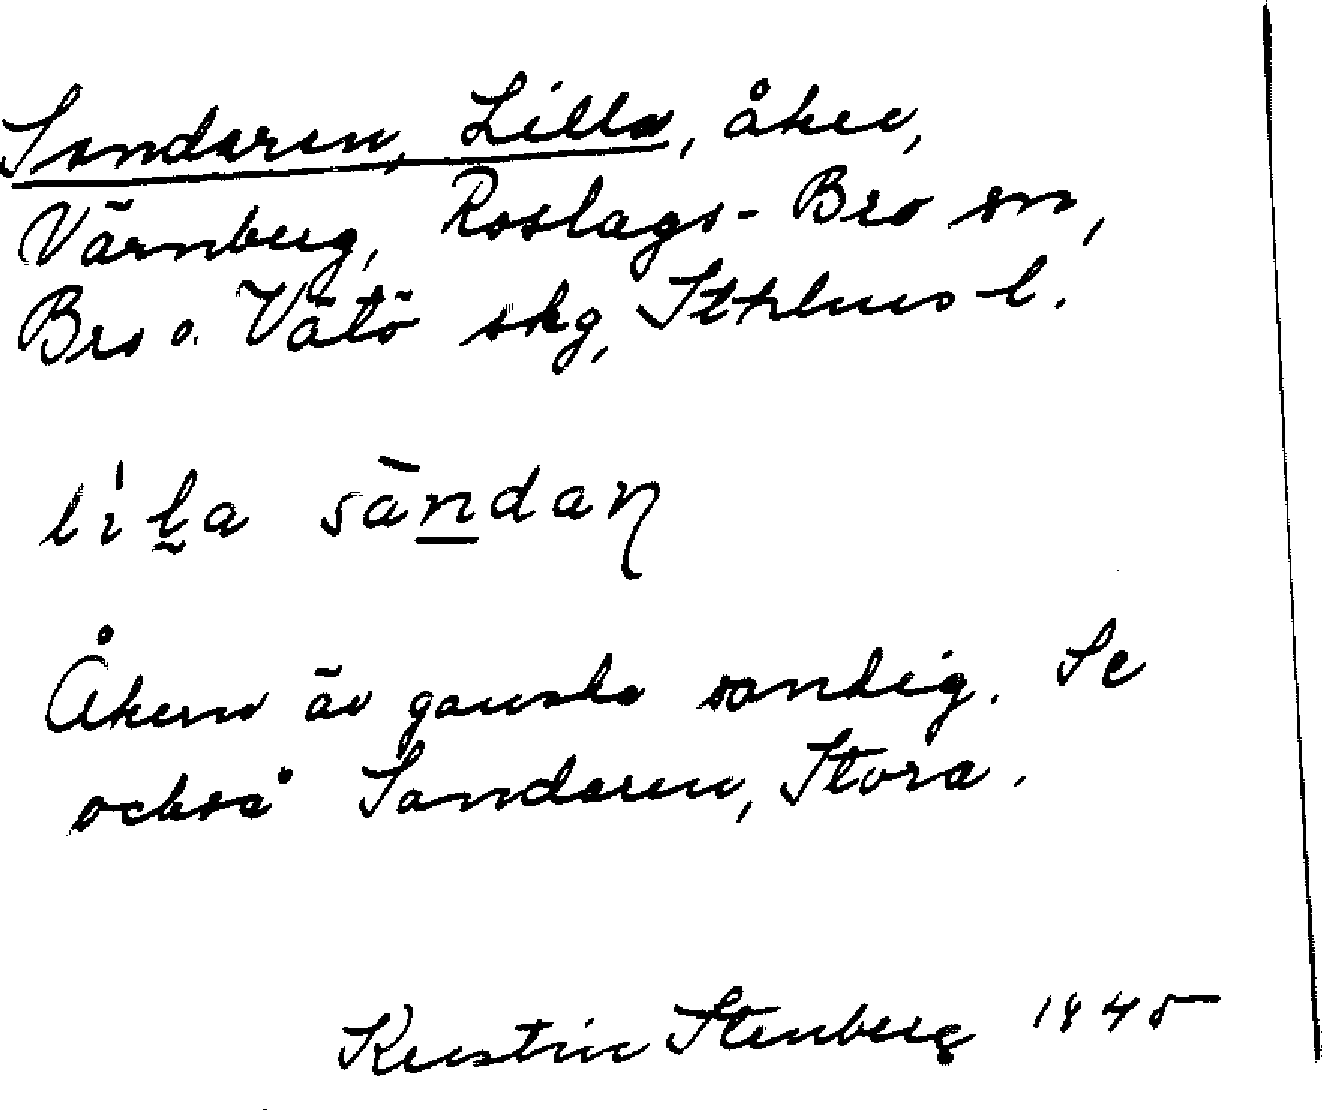 Sandaren, Lilla, åker,
Värnberg, Roslags-Bro sn,
Bro o. Vätö skg, Sthlms l.
li̍l̰a sàn̲daɳ
Åkern är ganska sandig. Se
också Sandaren, Stora.
Kerstin Stenberg 1945